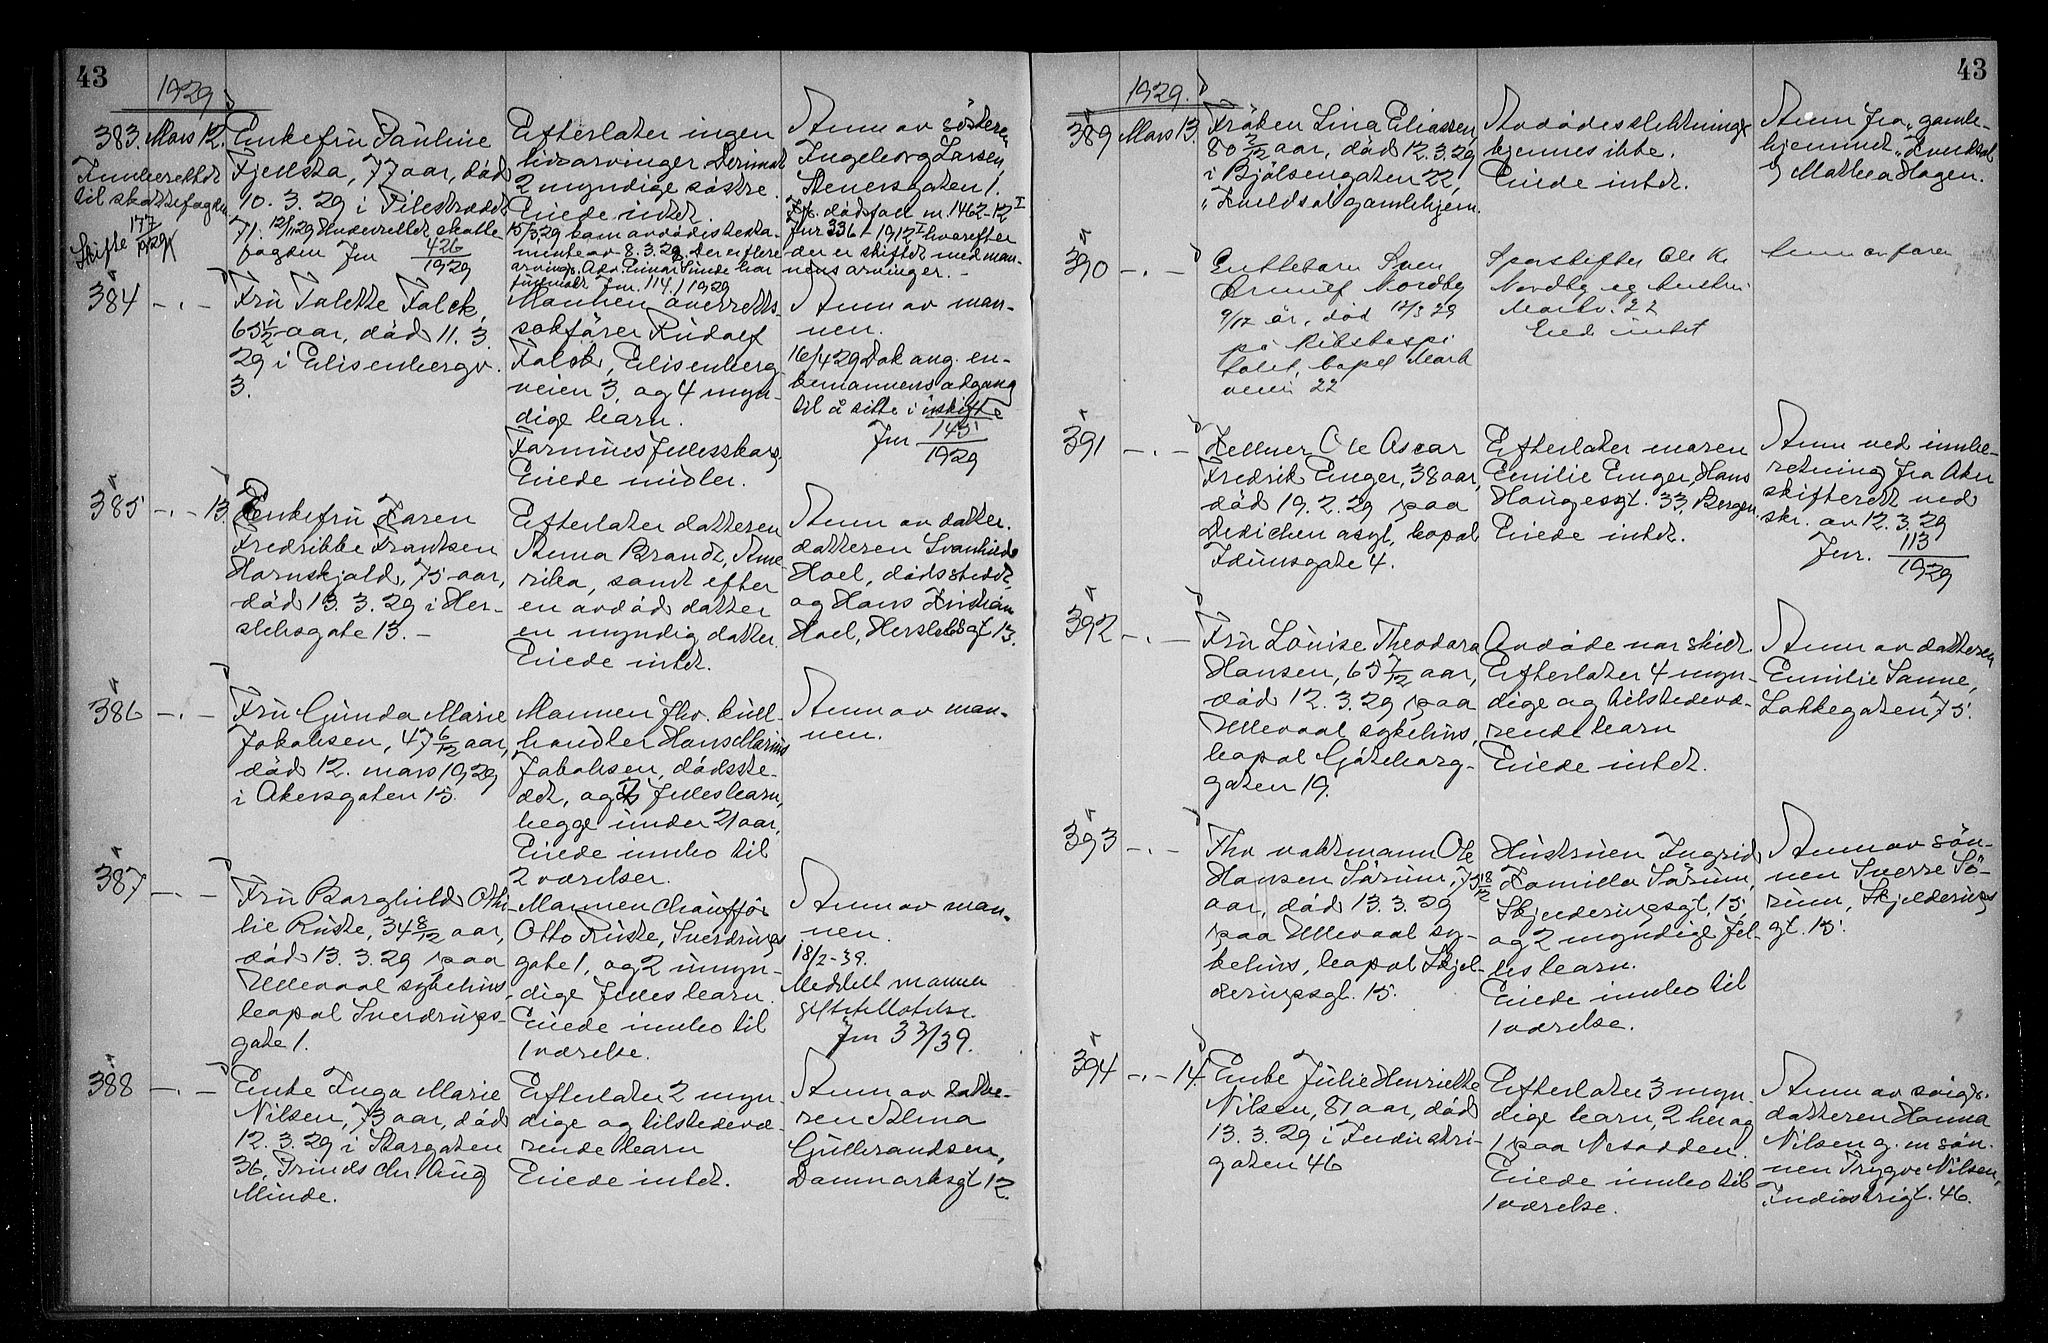 43
1929
383. Mars 12.
Innberettet
til skattefogden
Skifte 177/1929
Enkefru Pauline
Fjellsta, 77 aar, död
10. 3. 29 i Pilestrædet
71. 12/11 29 Underrettet skatte-
fogden Jnr 426/1929
Efterlater ingen
livsarvinger derimot
2 myndige söstre.
Eiede intet.
15/3 29 kom avdødes testa-
mente av 8. 3. 29. Der er flere
arvinger. Adv. Einar Sunde har
Jnr. 114/1929
Anm av sösteren
Ingeborg Larsen,
Stenersgaten 1.
Jfr. dödsfall nr. 1462-12 I
Jnr 336-1912 I hvorefter
der er skiftet med man-
nens arvinger.-
384 -.-
Fru Valette Falck,
65 1/2 aar, död 11. 3.
29 i Elisenbergv.
3.
Mannen overretts-
sakförer Rudolf
Falck, Elisenberg
veien 3, og 4 myn-
dige barn.
Formuesfellesskap
Eiede midler.
Anm av man-
nen.
16/4 29 Dok ang. en-
kemannens adgang
til å sitte i uskifte
Jnr 145/1929
385 -.- 13.
Enkefru Karen
Fredrikke Frantsen
Hornskjold, 75 aar,
död 13. 3. 29 i Her-
slebsgate 13.-
Efterlater datteren
Anna Brandt, Ame
rika, samt efter
en avdöd datter
en myndig datter.
Eiede intet.
Anm av datter.
datteren Svanhild
Hoel, dödsstedet,
og Hans Kristian
Hoel, Herslebsgt 13.
386 -.-
Fru Gunda Marie
Jakobsen, 47 6/12 aar,
död 12. mars 1929
i Akersgaten 15.
Mannen fhv. kull-
handler Hans Marius
Jakobsen, dödsste-
det, og fellesbarn,
begge under 21 aar.
Eiede innbo til
2 værelser.
Anm av man-
nen.
387 -.-
Fru Borghild Othi-
lie Ruste, 34 8/12 aar,
död 13. 3. 29 paa
Ullevaal sykehus,
bopal Sverdrups-
gate 1.
Mannen chaufför
Otto Ruste, Sverdrups
gate 1, og 2 umyn-
dige fellesbarn.
Eiede innbo til
1 værelse.
Anm av man-
nen.
18/2-39.
Meddelt mannen
giftetillatelse.
Jnr 33/39.
388 -.-
Enke Inga Marie
Nilsen, 73 aar, död
12. 3. 29 i Storgaten
36, Prinds Chr. Aug
Minde.
Efterlater 2 myn-
dige og tilstedevæ-
rende barn
Eiede intet.
Anm av datte-
ren Alma
Gulbrandsen,
Danmarksgt 12.
43
1929.
389 Mars 13.
Fröken Lina Eliassen,
80 2/12 aar, död 12. 3. 29
i Bjölsengaten 22,
"Kveldsol" gamlehjem.
Avdödes slektninger
kjennes ikke.
Eiede intet.
Anm fra "gamle-
hjemmet "Kveldsol"
v Mathea Hagen.
390 -.-
Enkebarn Sven
Ørnulf Nordby
9/12 år, død 12/3 29
på Rikshospi
talet, bopel Mark
veien 22
Sporskifter Ole K.
Nordby og hustru
Markv. 22
Eied intet
Anm av faren
391 -.-
Kellner Ole Oscar
Fredrik Enger, 38 aar,
död 19. 2. 29 paa
Dedichen asyl, bopal
Idunsgate 4.
Efterlater moren
Emilie Enger, Hans
Haugesgt. 33, Bergen.
Eiede intet.
Anm ved innbe-
retning fra Aker
skifterett ved
skr. av 12. 3. 29
Jnr. 113/1929
392 -.-
Fru Lovise Theodora
Hansen, 65 7/12 aar,
död 12. 3. 29 paa
Ullevaal sykehus,
bopal Göteborg-
gaten 19.
Avdöde var skilt.
Efterlater 4 myn-
dige og tilstedevæ-
rende barn
Eiede intet.
Anm av datteren
Emilie Sanne,
Lakkegaten 75.
393 -.-
Fhv vaktmann Ole
Hansen Sörum, 75 8/12
aar, död 13. 3. 29
paa Ullevaal sy-
kehus, bopal Skjel-
derupsgt. 15.
Hustruen Ingrid
Kamilla Sörum,
Skjelderupsgt. 15
og 2 myndige fel-
lesbarn.
Eiede innbo til
1 værelse.
Anm av sön-
nen Sverre Sö-
rum, Skjelderups
gt. 15.
394 -.- 14
Enke Julie Henriette
Nilsen, 81 aar, död
13. 3. 29 i Industri-
gaten 46
Efterlater 3 myn-
dige barn, 2 her og
1 paa Nesodden.
Eiede innbo til
1 værelse.
Anm av svige-
datteren Hanna
Nilsen g. m sön-
nen Trygve Nilsen,
Industrigt. 46.